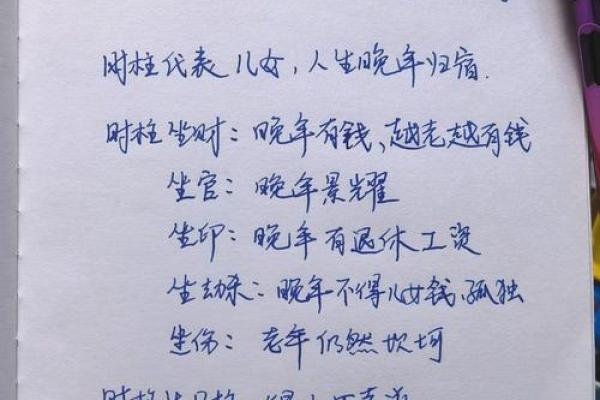 时柱代表儿女，人生晚年归宿.
时柱坐财：晚年有钱、越老越有钱
坐官：晚年景耀
坐印：晚年有退休工资
坐劫杀：晚年不得儿女钱、孤独
坐伤：老年仍然坎坷